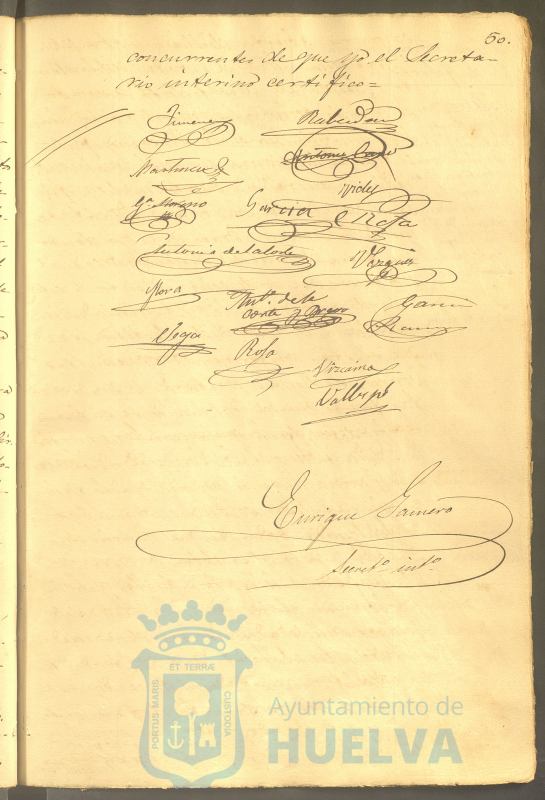 50.
concurrentes de que yo el Secreta-
rio interino certifico=
Jimenez
Rabadan
Martinez
Antonio
Gª Moreno
Vides
Garcia
E. Rosa
Antonio de la Corte
Vazquez
Mora
Antº. de la
Corte y Bravo
Garcia
Ramirez
Vega
Rosa
Vizcaino
Enrique Gamero
Secretº intº
ET TERRÆ
PORTUS MARIS
CUSTODIA
Ayuntamiento de
HUELVA